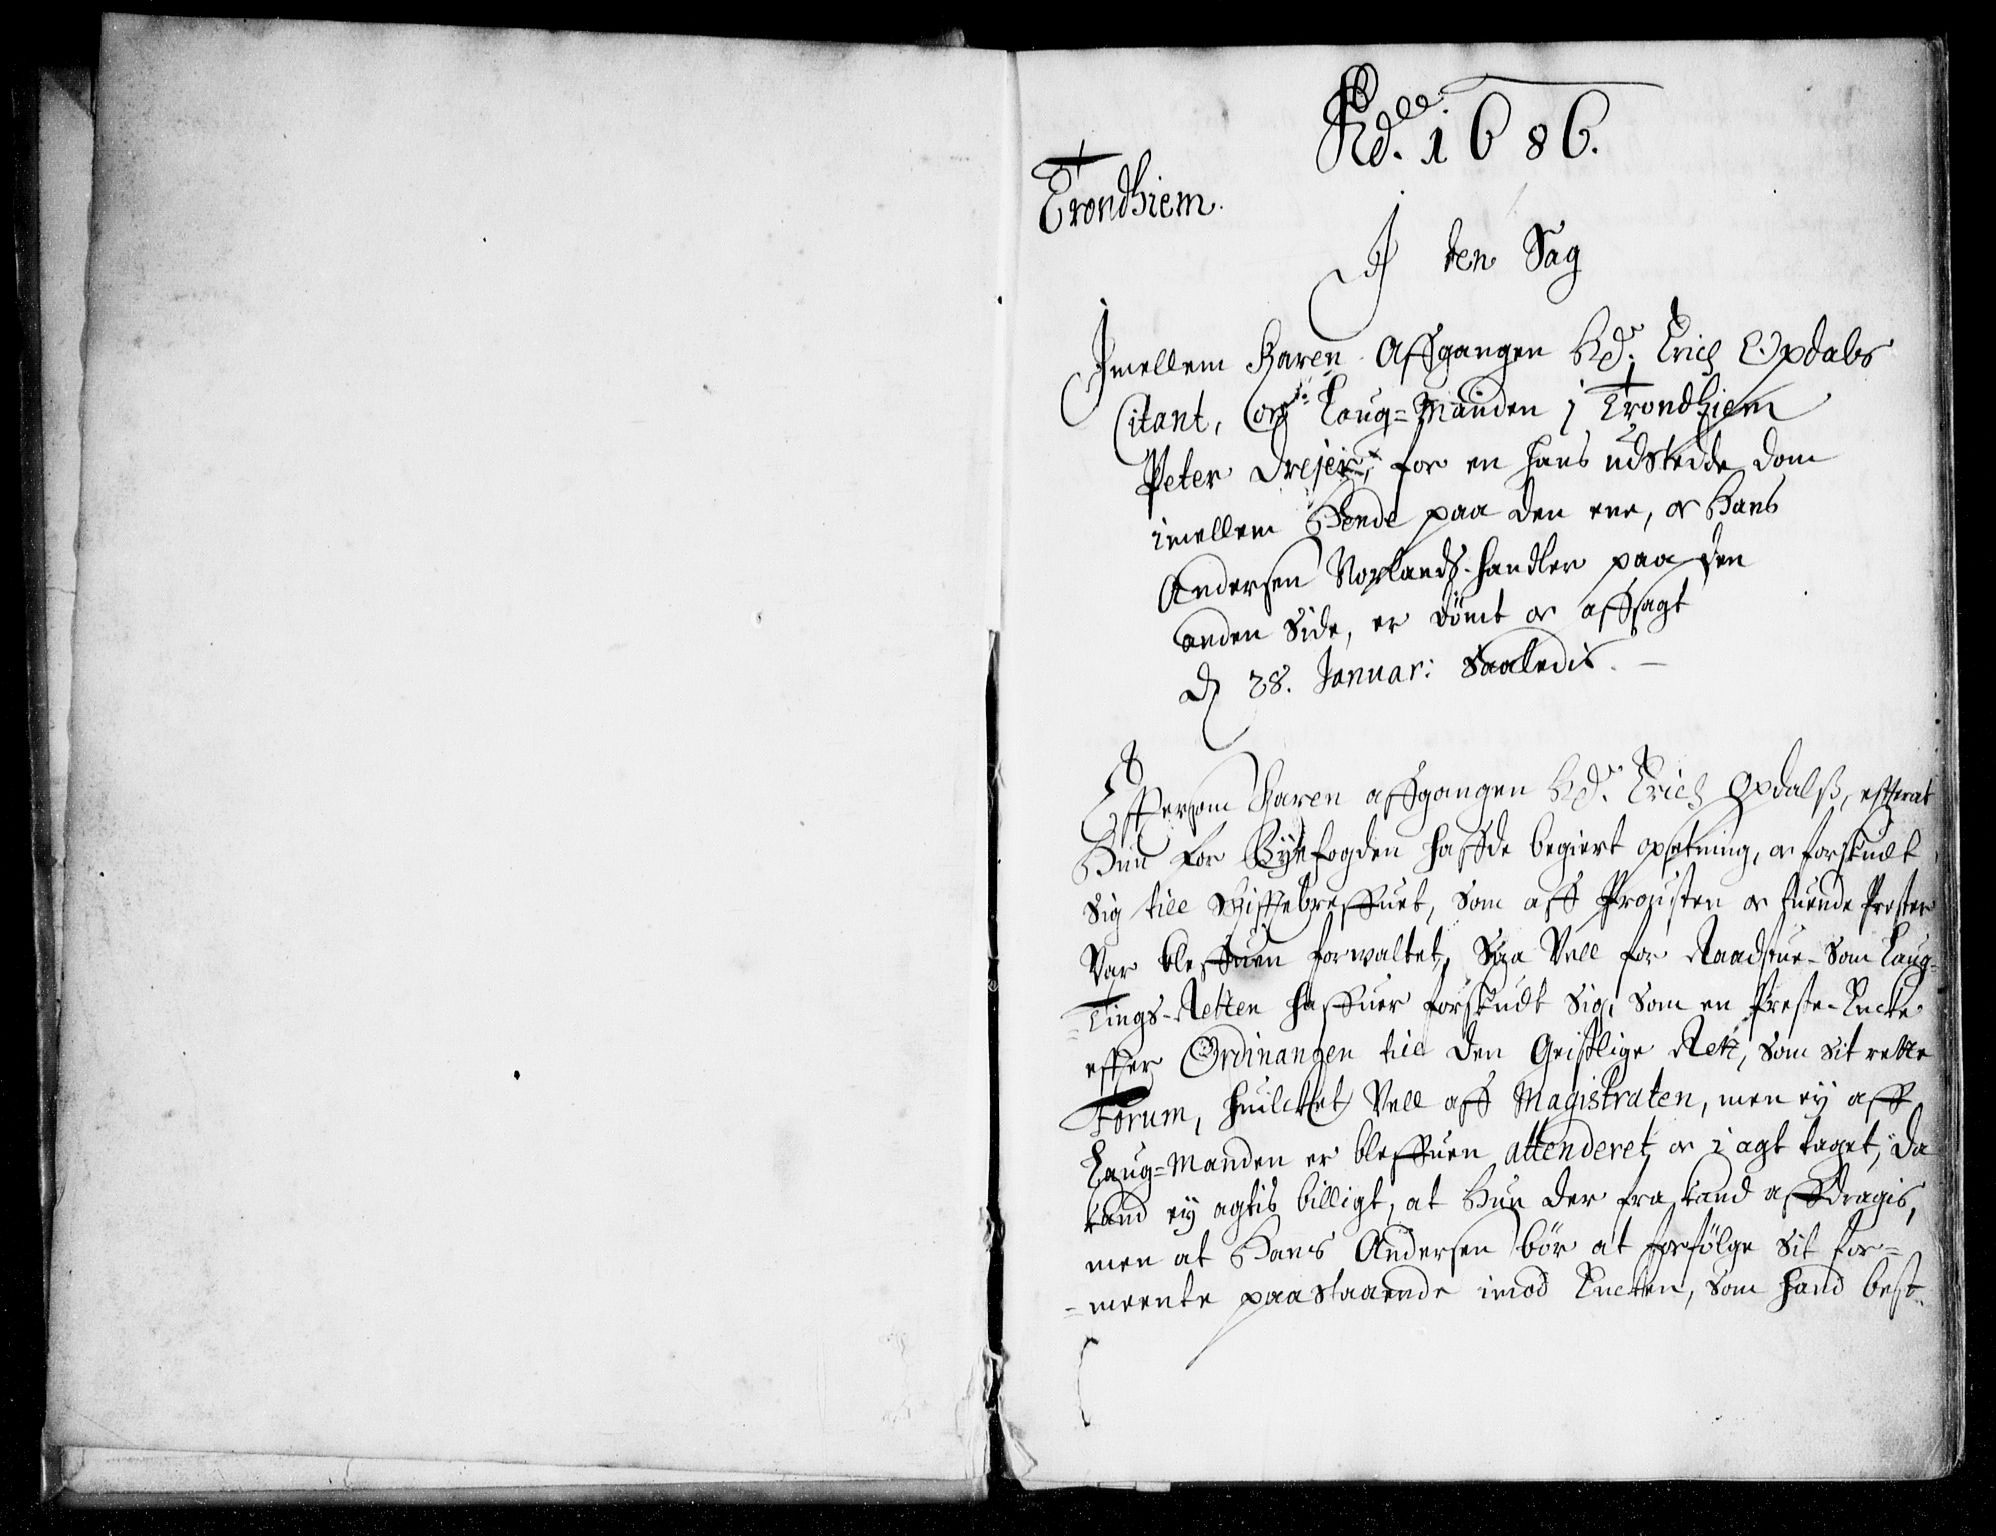 1686.
Trondhiem.
I den Sag
Imellem Karen Affgangen Hr. Erich Opdals
Citant, Laug=Manden i Trondhiem
Peter Drejer, for en hans udstedde dom
imellem Hende paa den ene, og Hans
Andersen Norlands-handler paa den
anden Side, er dömt og affsagt
d 28. Januar: Saaledis.
Effterson Karen affgangen Hr. Erich Opdalß, effterat
Hun for Byefogden haffde begiert opsetning, og forskudt
Sig till Skifftebreffuet, Som aff Prousten og tuende Prester
Var bleffuen forwaltet, Saa Vell for Raadstue-Som Laug-
=Tings-Retten haffuer forskudt Sig, Som en Preste-Encke
effter Ordinanzen till den Geistlige Rett, Som Sit rette
Forum, huilcket Vell aff Magistraten, men ey aff
Laug=Manden er bleffuen attenderet og i agt taget, Da
kand ey agtis billigt, at Hun der fra kand affdragis,
men at Hans Andersen bör at forfölge Sit for=
=meente paastaaende imod Encken, Som hand best